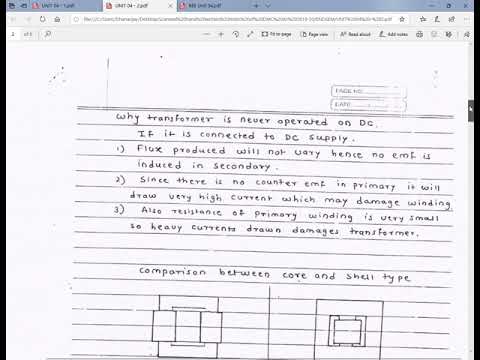 UNIT 04 - 1.pdf
UNIT 04 - 2.pdf
BEE Unit 04.pdf
2
PAGE NO.
DATE
Why transformer is never operated on DC.
If it is connected to DC supply.
1) Flux produced will not vary hence no emf is
induced in secondary.
2) Since there is no counter emf in primary it will
draw very high current which may damage winding
3) Also resistance of primary winding is very small
so heavy currents drawn damages transformer.
comparison between core and shell type